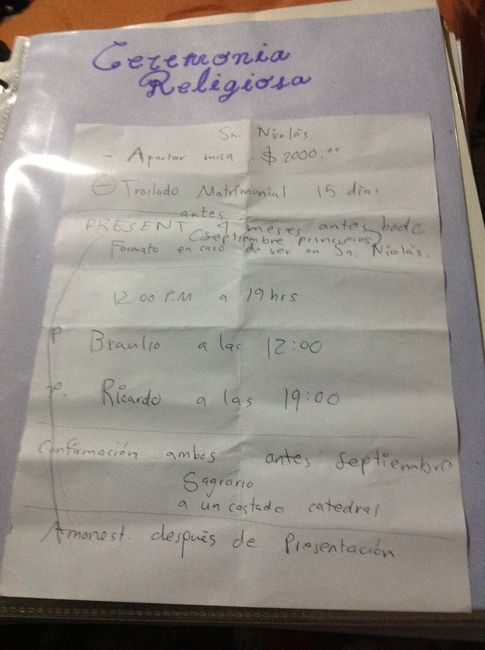 Ceremonia
Religiosa
Sn. Nicolás
- Apartar misa $2000.00
Traslado Matrimonial 15 días
antes -
PRESENT 4 meses antes boda
(septiembre principios)
Formato en caso de ser en Sn. Nicolás.
12.00 P.M a 19 hrs
P Braulio a las 12:00
P. Ricardo a las 19:00
Confirmación ambos antes septiembre
Sagrario
a un costado catedral
Amonest. después de Presentación